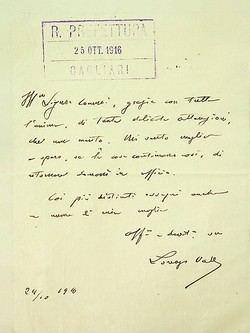 R. PREFETTURA
25 OTT. 1916
CAGLIARI
Signor, grazie con tutta
l'anima, di tanta delicata attenzione,
che non merito. Mi sento meglio
e spero, se le cose continuano così, di
ritornare domani in ufficio.
Coi più distinti ossequi anche
a nome di mia moglie
24/10 1916